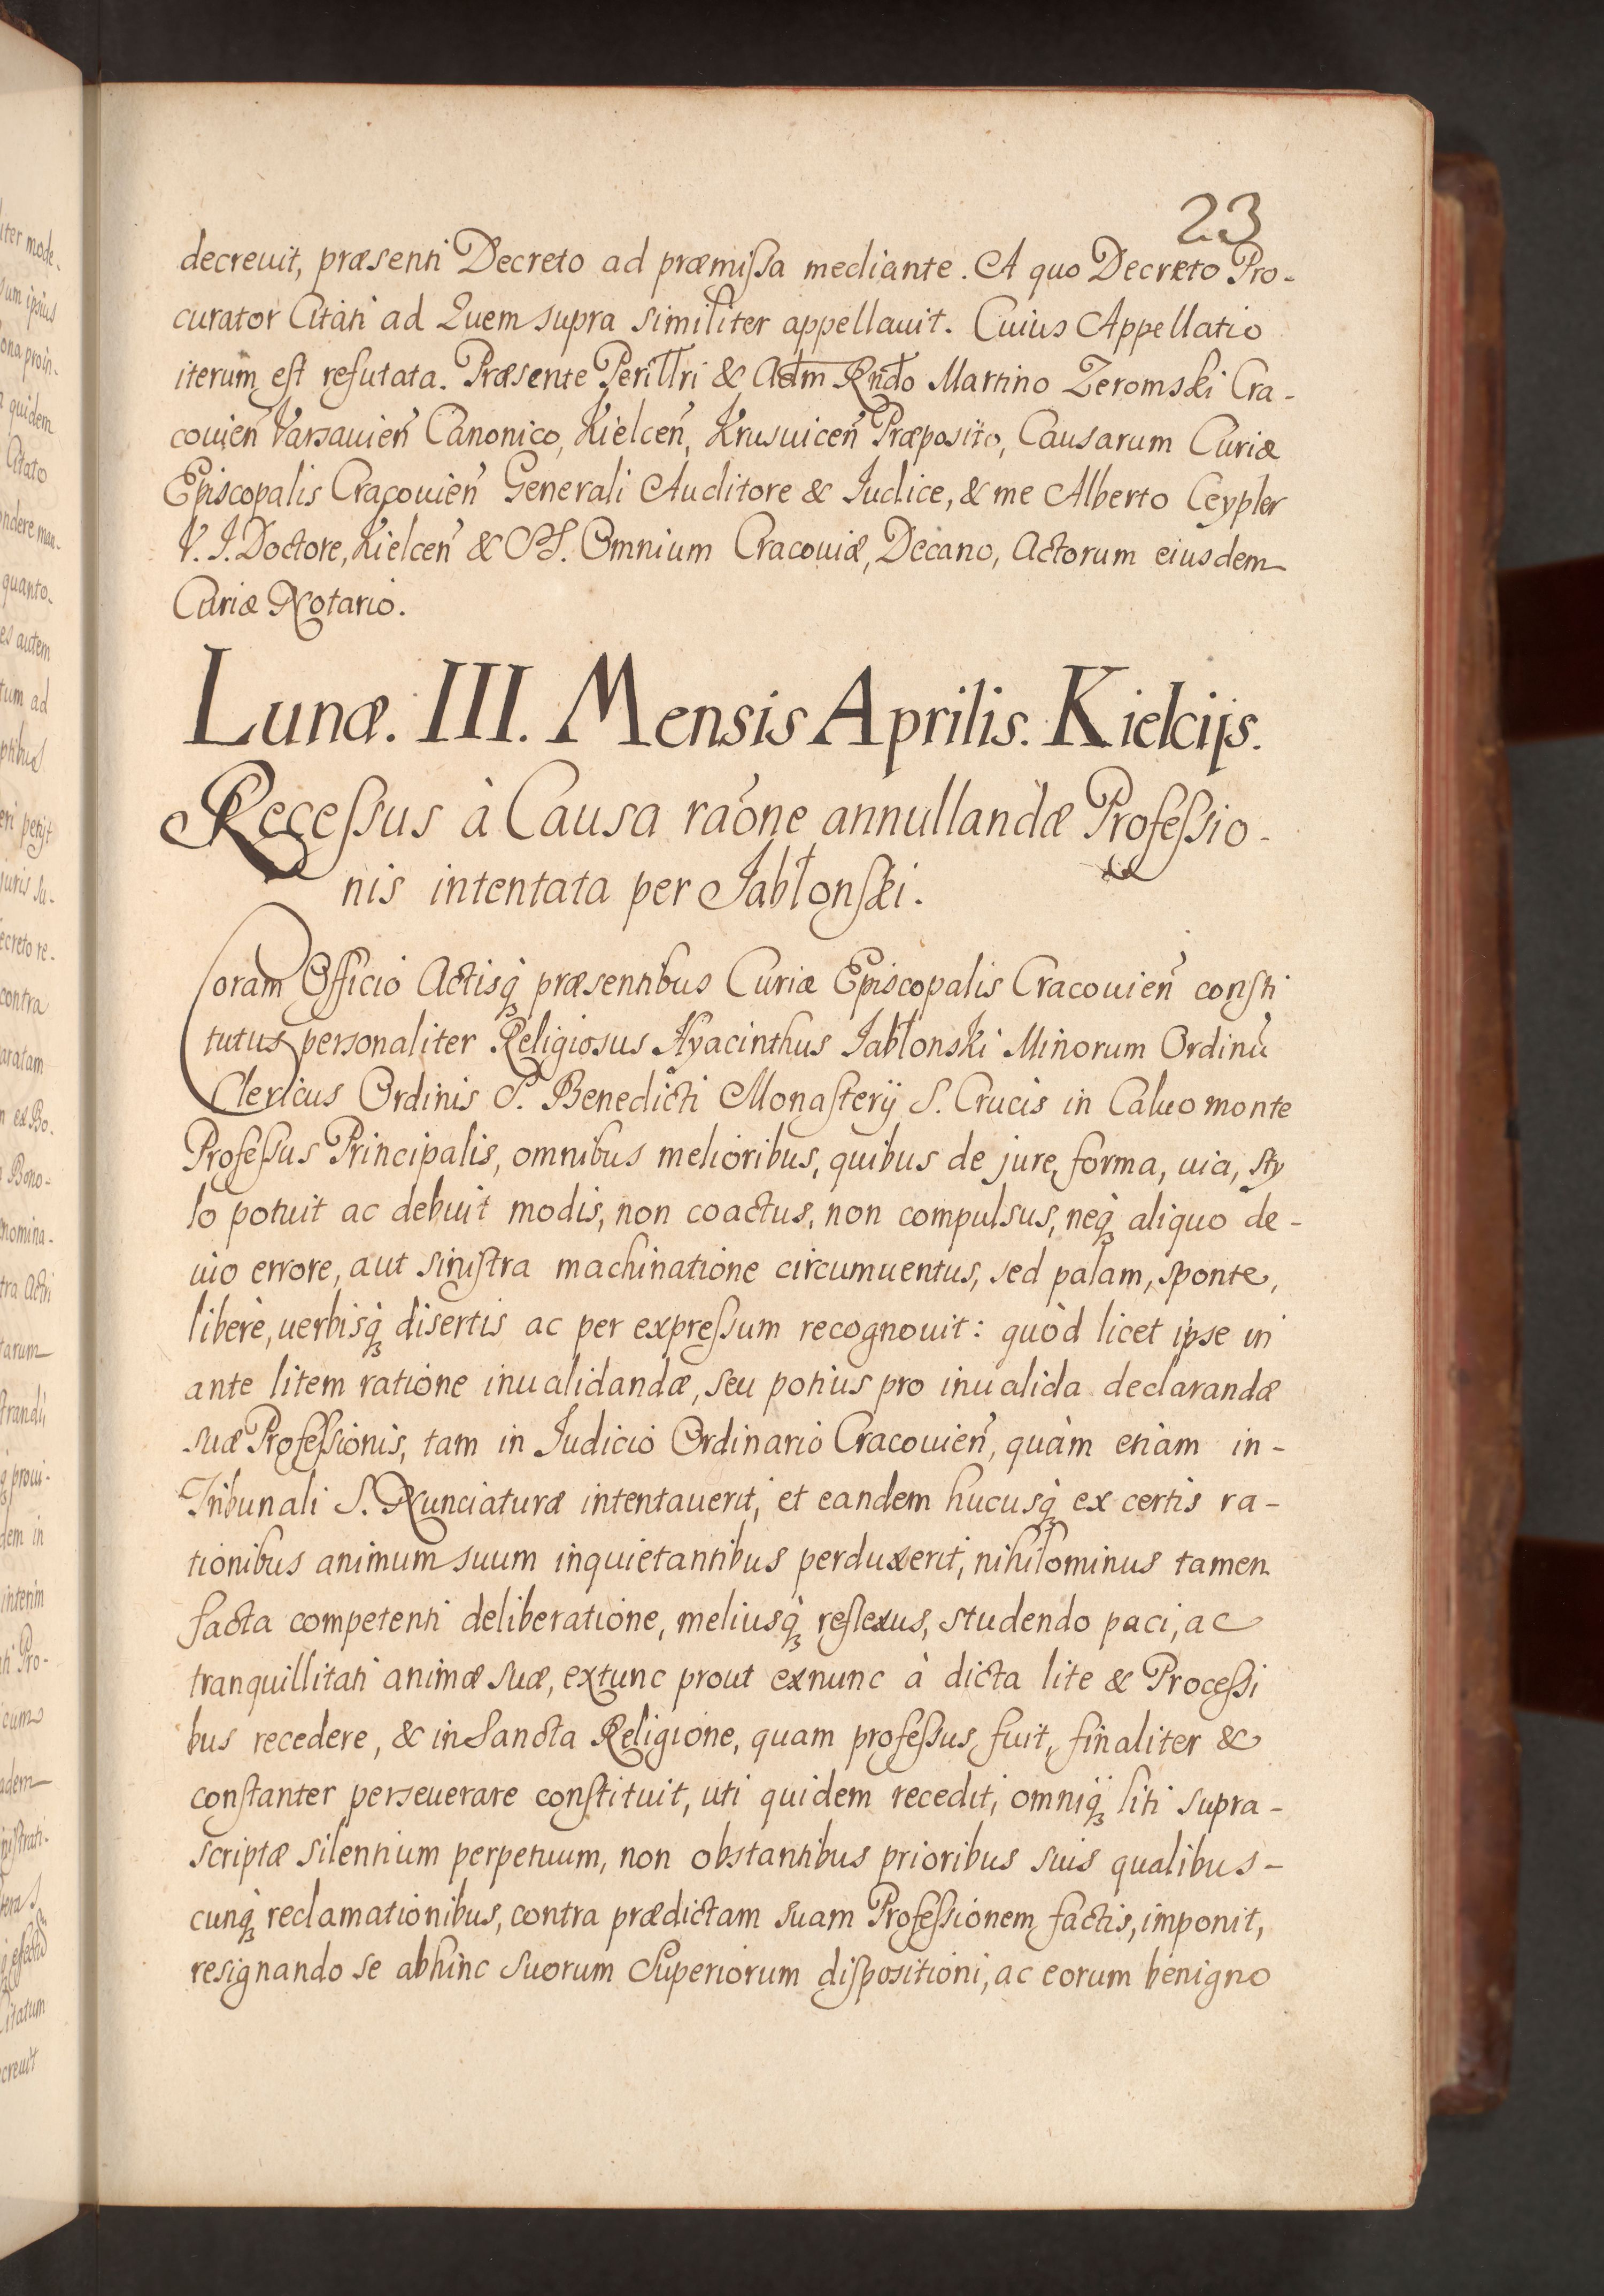 23
decreuit, præsenti Decreto ad præmiſsa mediante. A quo Decreto Pro-
curator Citati ad Quem supra similiter appellauit. Cuius Appellatio
iterum est refutata. Præsente Perillri & Adm Rndo Martino Zeromski Cra-
couien̄ Varsauien̄ Canonico, Kielcen̄, Krusuicen̄ Præposito, Causarum Curiæ
Episcopalis Cracouien̄ Generali Auditore & Iudice, & me Alberto Ceypler
V. I. Doctore, Kielcen̄ & SS. Omnium Cracouiæ, Decano, Actorum eiusdem
Curiæ Notario.
Lunæ. III. Mensis Aprilis. Kielcijs.
Receſsus à Causa raóne annullandæ Profeſsio-
nis intentata per Jabłonſki.
Coram Officio Actisq̨ præsentibus Curiæ Episcopalis Cracouien̄ conſti
tutus personaliter Religiosus Hyacinthus Jabłonski Minorum Ordinū
Clericus Ordinis S. Benedicti Monaſterij S. Crucis in Caluo monte
Profeſsus Principalis, omnibus melioribus, quibus de jure, forma, uia, sty
lo potuit ac debuit modis, non coactus, non compulsus, neq̨ aliquo de-
uio errore, aut siniſtra machinatione circumuentus, sed palam, sponte,
liberè, uerbisq̨ disertis ac per expreſsum recognouit: quòd licet ipse in
ante litem ratione inualidandæ, seu potius pro inualida declarandæ
suæ Profeſsionis, tam in Iudicio Ordinario Cracouien̄, quàm etiam in-
Tribunali S. Nunciaturæ intentauerit, et eandem hucusq̨ ex certis ra-
tionibus animum suum inquietantibus perduxerit, nihilominus tamen
facta competenti deliberatione, meliusq̨ reflexus, studendo paci, ac
tranquillitati animæ suæ, extunc prout exnunc à dicta lite & Proceſsi
bus recedere, & in Sancta Religione, quam profeſsus fuit, finaliter &
conſtanter perseuerare conſtituit, uti quidem recedit, omniq̨ liti supra-
scriptæ silentium perpetuum, non obstantibus prioribus suis qualibus-
cunq̨ reclamationibus, contra prædictam suam Profeſsionem factis, imponit,
resignando se abhinc suorum Superiorum diſpositioni, ac eorum benigno